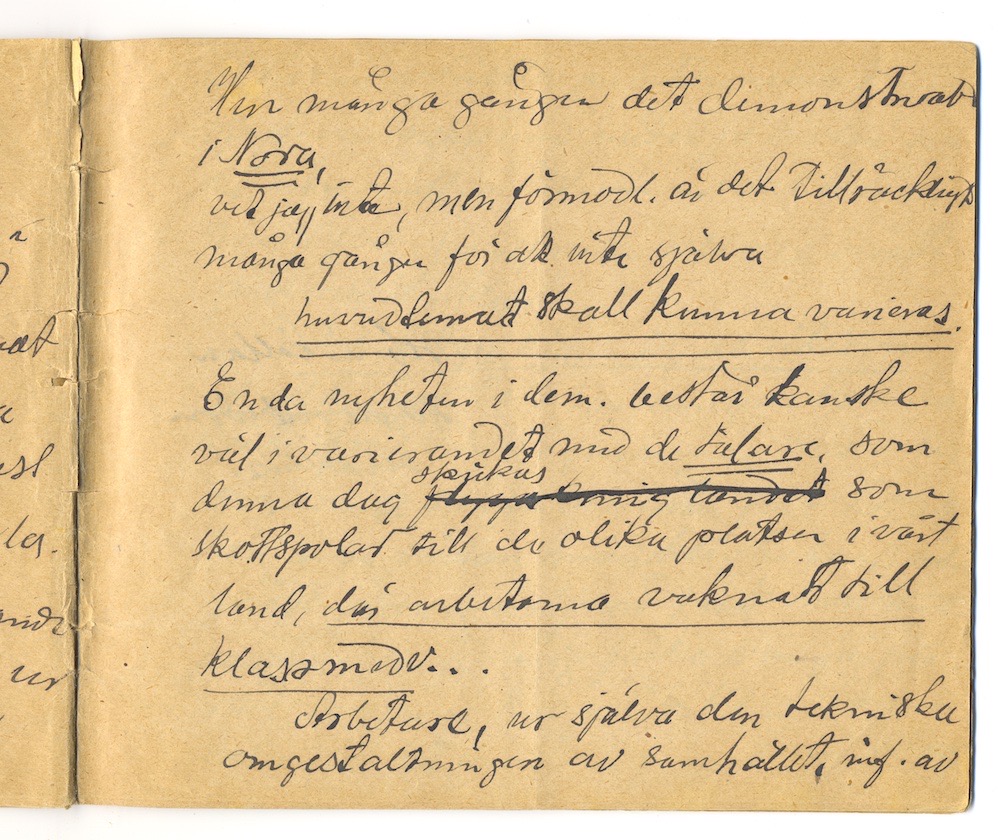 Hur många gången det demonstrerat
i Nora,
vet jag inte, men förmodl. är det tillräckligt
många gånger för att inte själva
huvudtemat skall kunna varieras.
Enda nyheten i dem. består kanske
väl i varierandet med de talare, som
denna dag skickas som
skottspolar till de olika platser i vårt
land, där arbetarna vaknat till
klassmedv...
Arbetare, ur själva den tekniska
omgestaltningen av samhället, inf. av